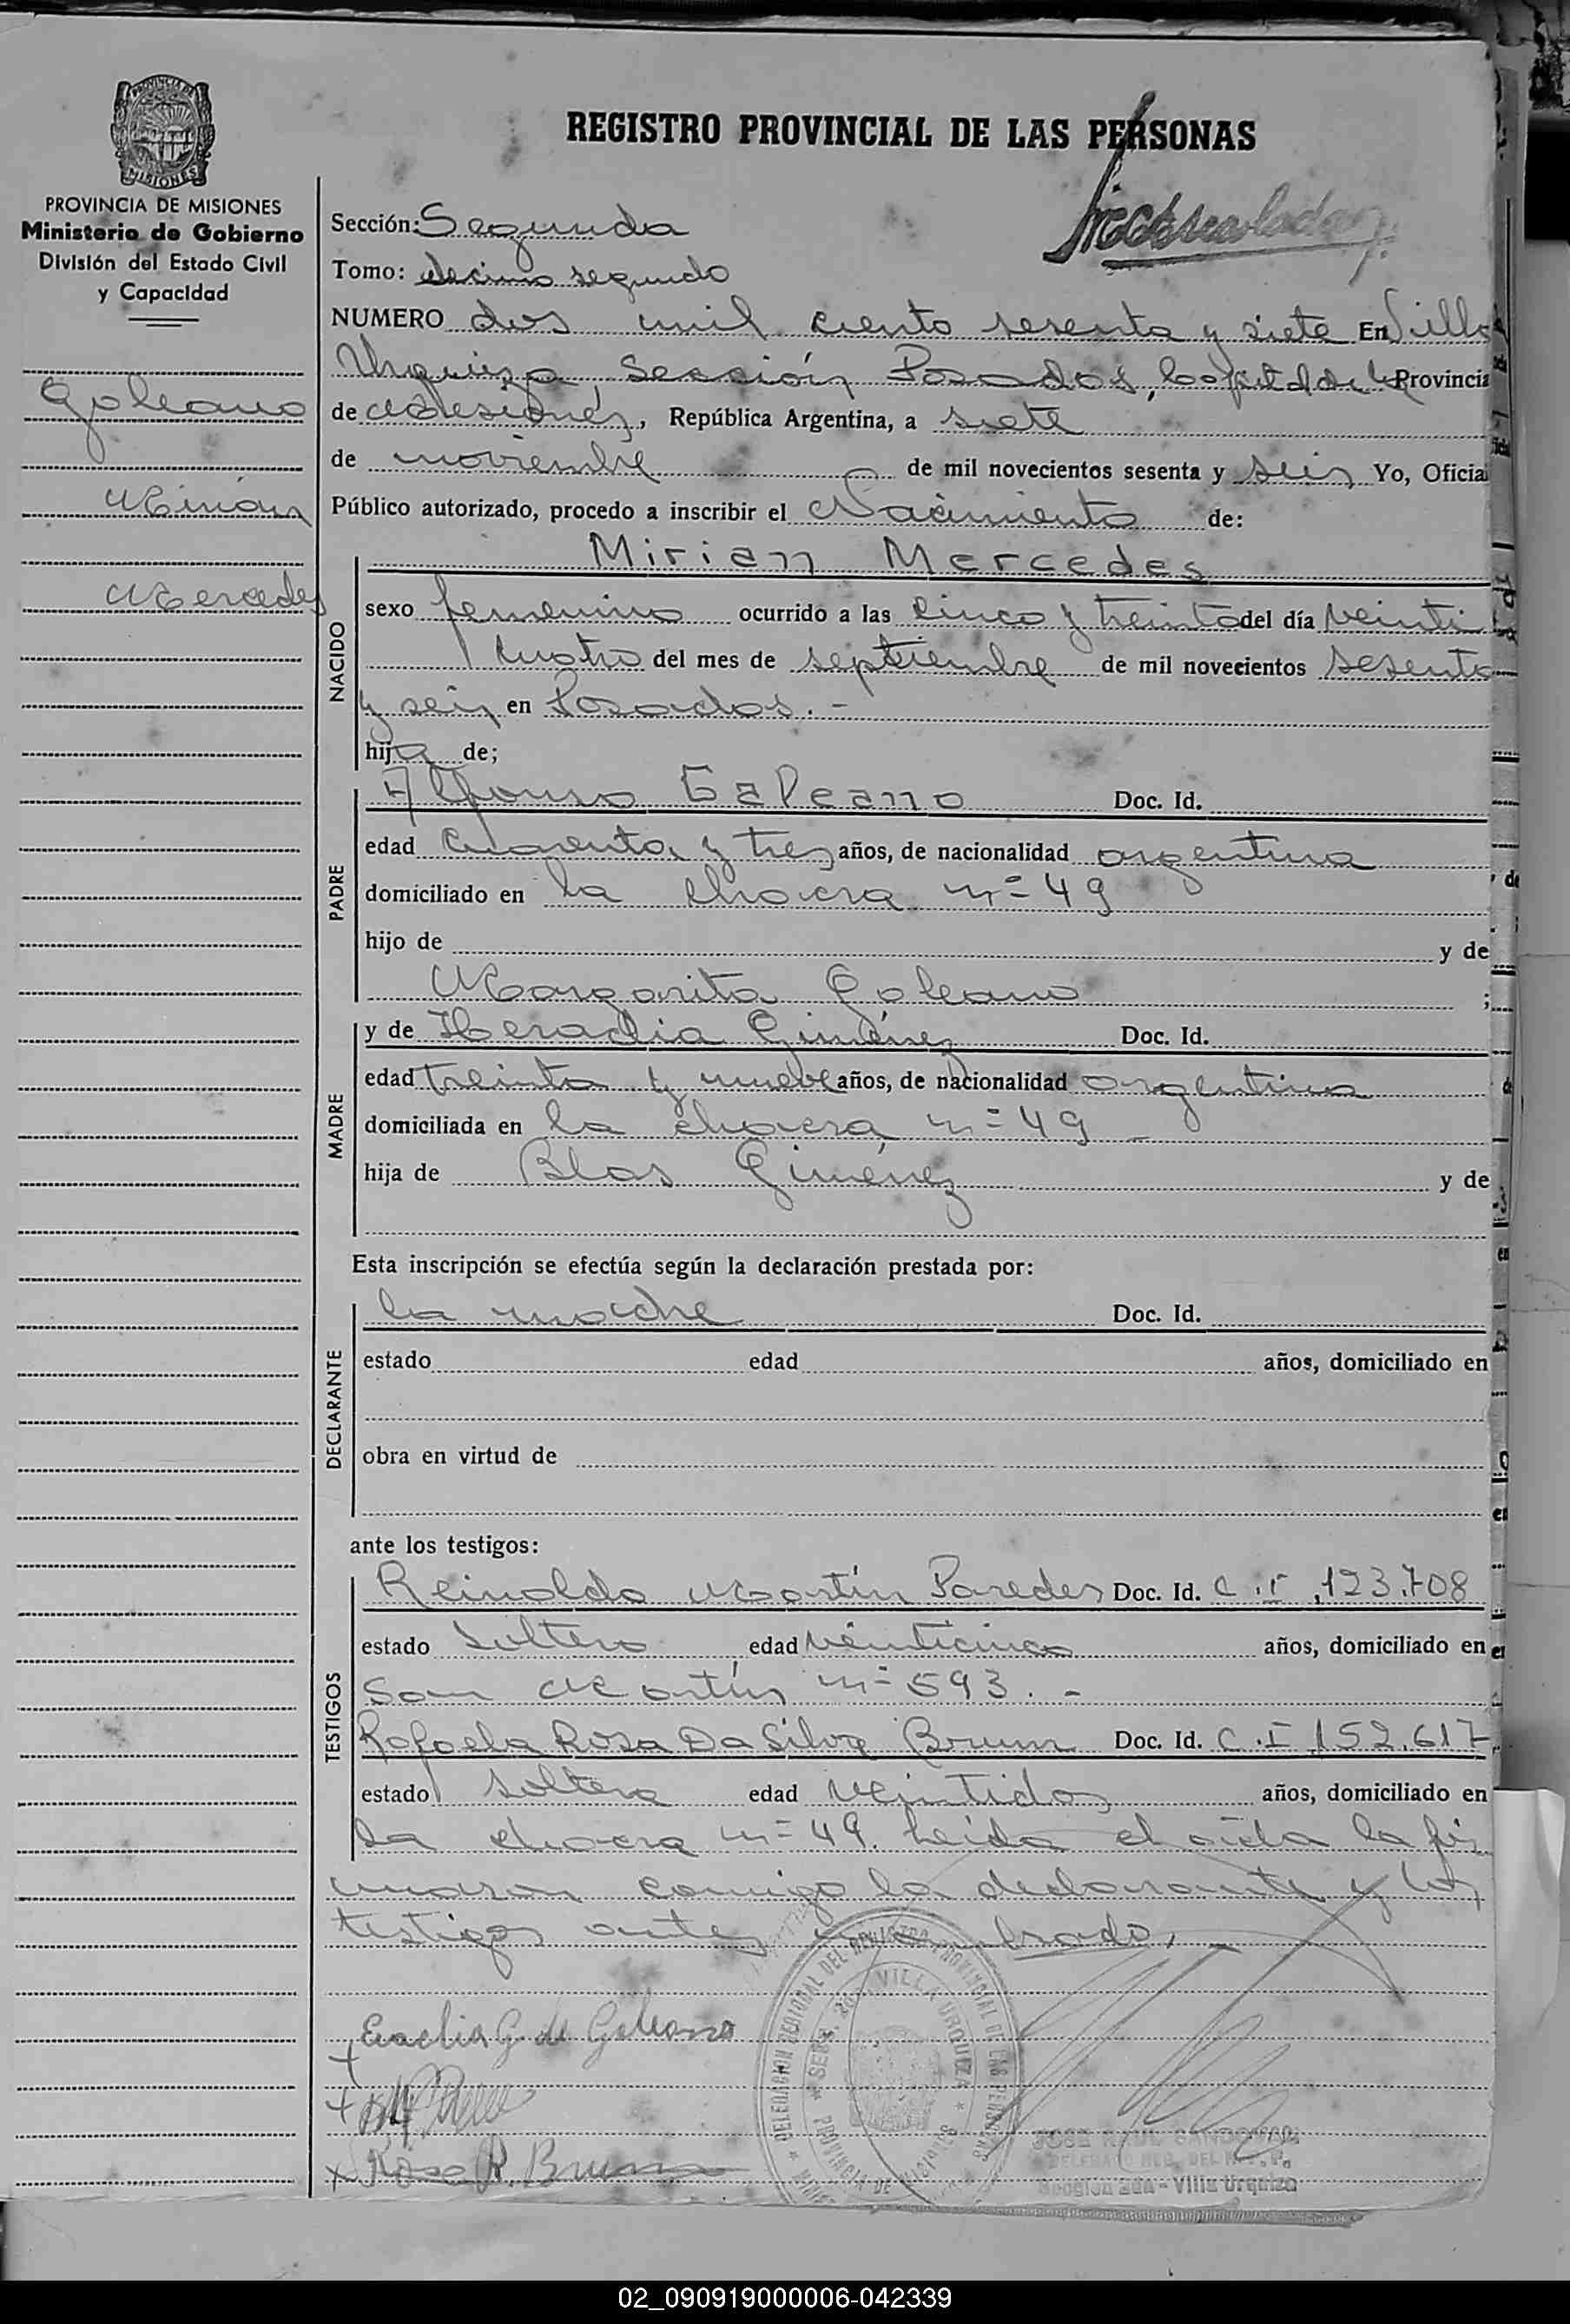 REGISTRO PROVINCIAL DE LAS PERSONAS
PROVINCIA DE MISIONES
Ministerio de Gobierno
División del Estado Civil
y Capacidad
Galeano
Mirian
Mercedes
Sección: Segunda
Tomo: decimo segundo
NUMERO dos mil ciento sesenta y siete En Villa
Urquiza, Sección Posadas, Capital de la Provincia
de Misiones, República Argentina, a siete
de noviembre de mil novecientos sesenta y seis Yo, Oficial
Público autorizado, procedo a inscribir el Nacimiento de:
NACIDO
Mirian Mercedes
sexo femenino ocurrido a las cinco y treinta del día veinti
cuatro del mes de septiembre de mil novecientos sesenta
y seis en Posadas. -
hija de;
PADRE
Alfonso Galeano Doc. Id.
edad cuarenta y tres años, de nacionalidad argentina
domiciliado en la chacra nº 49
hijo de y de
Margarita Galeano ;
MADRE
y de Heraclia Giménez Doc. Id.
edad treinta y nueve años, de nacionalidad argentina
domiciliada en la chacra nº 49
hija de Blas Giménez y de
Esta inscripción se efectúa según la declaración prestada por:
DECLARANTE
la madre Doc. Id.
estado edad años, domiciliado en
obra en virtud de
ante los testigos:
TESTIGOS
Reinaldo Martín Paredes Doc. Id. C.I. 123.708
estado soltero edad veinticinco años, domiciliado en
San Martín nº 593. -
Rafaela Rosa Da Silva Brum Doc. Id. C.I 152.617
estado soltera edad veintidos años, domiciliado en
la chacra nº 49. Leída el acta la fir
maron conmigo la declarante y los
testigos antes
Eraclia G de Galeano
Rosa R. Brum
DELEGACION REGIONAL DEL REGISTRO PROVINCIAL DE LAS PERSONAS
SECC. 2da. VILLA URQUIZA
PROVINCIA DE MISIONES
JOSE RAUL SANDOVAL
Sección 2da - Villa Urquiza
02_090919000006-042339